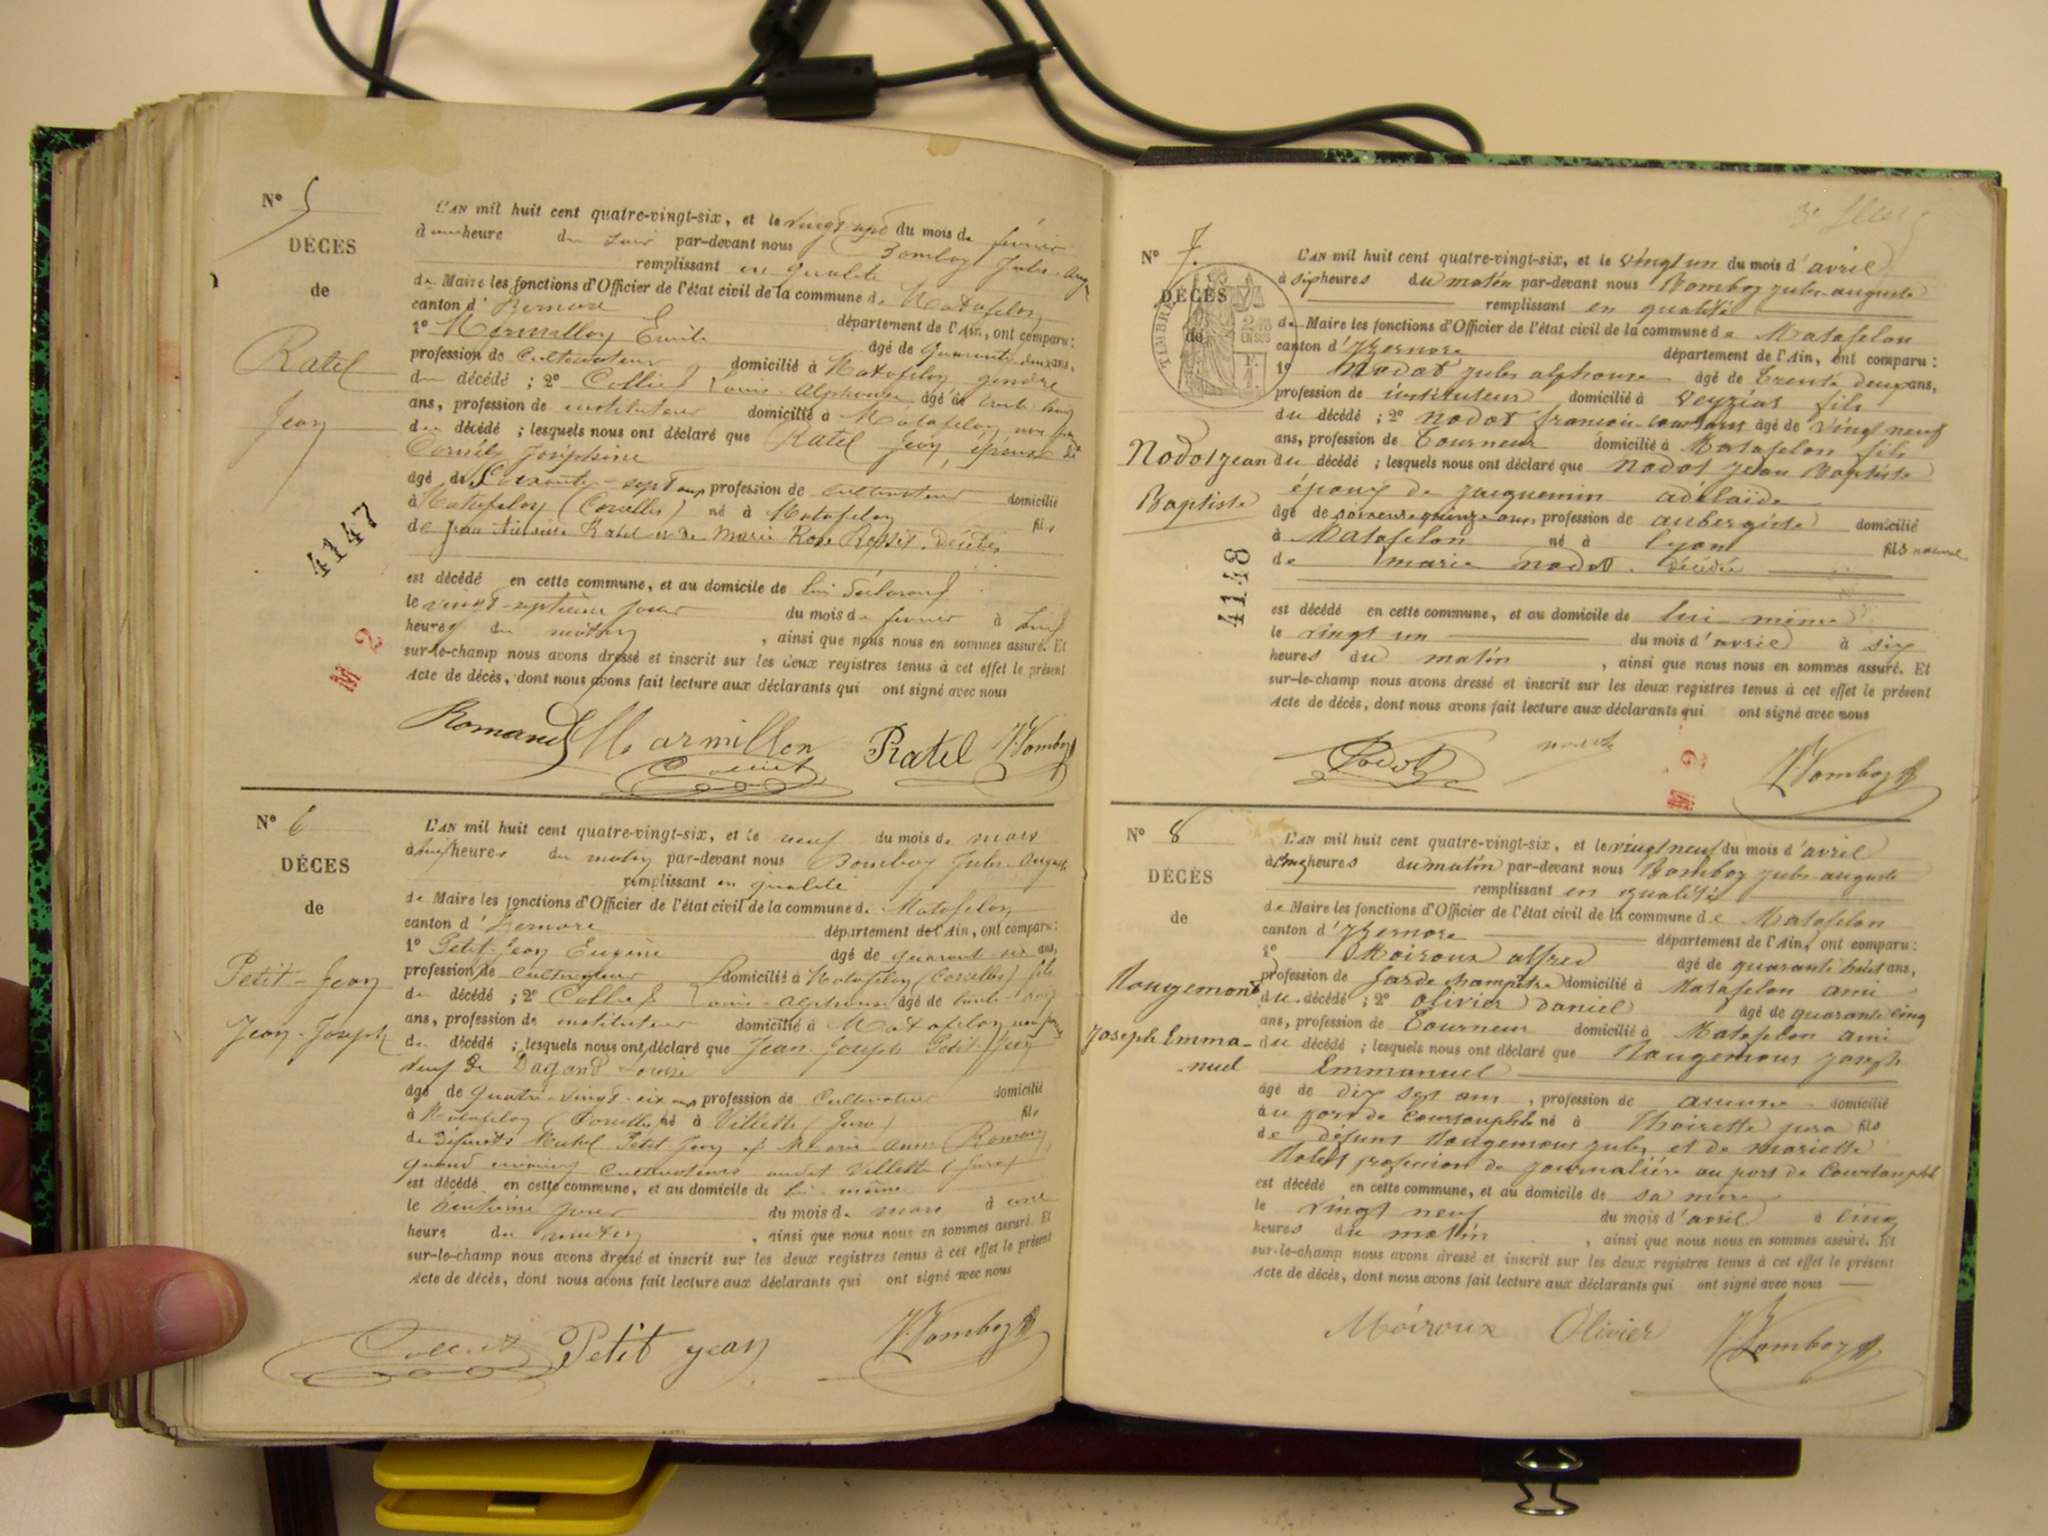 N° 5
DÉCÈS
de
Ratel
Jean
4147
M 2
L'AN mil huit cent quatre-vingt-six, et le vingt-sept du mois de février
à une heure du soir par-devant nous Bomboy Jules-Auguste
remplissant en qualité
de Maire les fonctions d'Officier de l'état civil de la commune de Matafelon
canton d' Izernore département de l'Ain, ont comparu :
1° Marmillon Emile âgé de quarante-deux ans,
profession de Cultivateur domicilié à Matafelon gendre
du décédé ; 2° Collet Louis-Alphonse âgé de trente-trois
ans, profession de instituteur domicilié à Matafelon non parent
du décédé ; lesquels nous ont déclaré que Ratel Jean, époux de
Joséphine
âgé de Soixante-sept ans profession de cultivateur domicilié
à Matafelon (Corcelles) né à Matafelon fils
de Jean Ratel et de Marie Rose décédés
est décédé en cette commune, et au domicile de lui
le vingt-septième jour du mois de février à
heures du matin , ainsi que nous nous en sommes assuré. Et
sur-le-champ nous avons dressé et inscrit sur les deux registres tenus à cet effet le présent
Acte de décès, dont nous avons fait lecture aux déclarants qui ont signé avec nous
Romand Marmillon Ratel J. Bomboy
Collet
N° 6
DÉCES
de
Petit-Jean
Jean-Joseph
L'AN mil huit cent quatre-vingt-six, et le neuf du mois de mars
à heures du matin par-devant nous Bomboy Jules-Auguste
remplissant en qualité
de Maire les fonctions d'Officier de l'état civil de la commune de Matafelon
canton d' Izernore département de l'Ain, ont comparu :
1° Petit-Jean Eugène âgé de quarante six ans,
profession de cultivateur domicilié à Matafelon (Corcelles) fils
du décédé ; 2° Collet Louis-Alphonse âgé de trente-trois
ans, profession de instituteur domicilié à Matafelon non parent
du décédé ; lesquels nous ont déclaré que Jean-Joseph Petit-Jean
veuf de Dagand Louise
âgé de quatre-vingt-six ans profession de Cultivateur domicilié
à Matafelon (Corcelles) né à Villette (Jura) fils
de défunts Petit Jean et Marie Anne Romand
quand vivaient cultivateurs audit Villette (Jura)
est décédé en cette commune, et au domicile de lui-même
le huitième jour du mois de mars à une
heure du matin , ainsi que nous nous en sommes assuré. Et
sur-le-champ nous avons dressé et inscrit sur les deux registres tenus à cet effet le présent
Acte de décès, dont nous avons fait lecture aux déclarants qui ont signé avec nous
Collet Petit jean J. Bomboy
N° 7.
DÉCÈS
de
TIMBRE
Nodot jean
Baptiste
4148
M 2
L'AN mil huit cent quatre-vingt-six, et le vingt un du mois d'avril
à six heures du matin par-devant nous Bomboy jules-auguste
remplissant en qualité
de Maire les fonctions d'Officier de l'état civil de la commune de Matafelon
canton d'Izernore département de l'Ain, ont comparu :
1° Nodot jules alphonse âgé de trente deux ans,
profession de instituteur domicilié à veyziat fils
du décédé ; 2° nodot françois âgé de vingt neuf
ans, profession de tourneur domicilié à Matafelon fils
du décédé ; lesquels nous ont déclaré que nodot jean Baptiste
époux de jacquemin adélaïde
âgé de soixante quinze ans profession de aubergiste domicilié
à Matafelon né à lyon fils naturel
de marie nodot. décédée
est décédé en cette commune, et au domicile de lui même
le vingt un du mois d'avril à six
heures du matin , ainsi que nous nous en sommes assuré. Et
sur-le-champ nous avons dressé et inscrit sur les deux registres tenus à cet effet le présent
Acte de décès, dont nous avons fait lecture aux déclarants qui ont signé avec nous
Nodot nodot J. Bomboy
N° 8
DÉCÈS
de
Rougemont
joseph Emma-
-nuel
L'AN mil huit cent quatre-vingt-six, et le vingt neuf du mois d'avril
à cinq heures du matin par-devant nous Bomboy jules auguste
remplissant en qualité
de Maire les fonctions d'Officier de l'état civil de la commune de Matafelon
canton d'Izernore département de l'Ain, ont comparu :
1° Moiroux alfred âgé de quarante huit ans,
profession de Garde champêtre domicilié à Matafelon ami
du décédé ; 2° olivier Daniel âgé de quarante cinq
ans, profession de Tourneur domicilié à Matafelon ami
du décédé ; lesquels nous ont déclaré que Rougemont joseph
Emmanuel
âgé de dix sept ans , profession de aucune domicilié
au port de Courtouphle né à Thoirette jura fils
de défunt Rougemont jules et de mariette
profession de journalière au port de Courtouphle
est décédé en cette commune, et au domicile de sa mère
le vingt neuf du mois d'avril à cinq
heures du matin , ainsi que nous nous en sommes assuré. Et
sur-le-champ nous avons dressé et inscrit sur les deux registres tenus à cet effet le présent
Acte de décès, dont nous avons fait lecture aux déclarants qui ont signé avec nous
Moiroux Olivier J. Bomboy